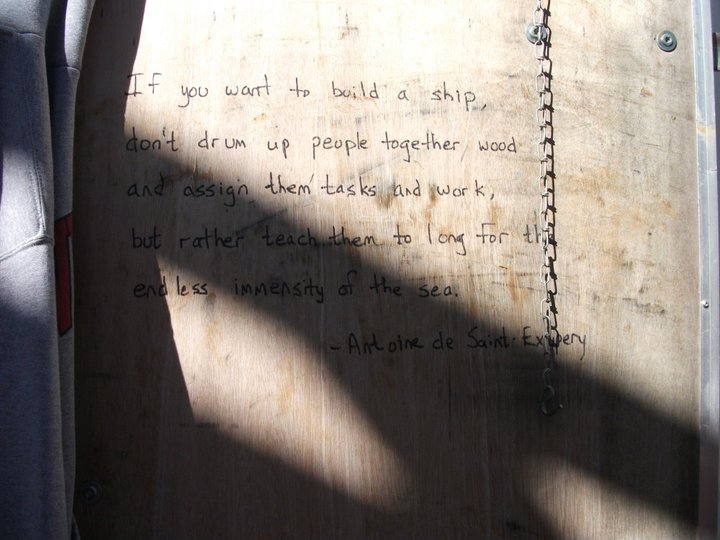 If you want to build a ship,
don't drum up people together, wood
and assign them tasks and work,
but rather teach them to long for the
endless immensity of the sea.
- Antoine de Saint-Exupery